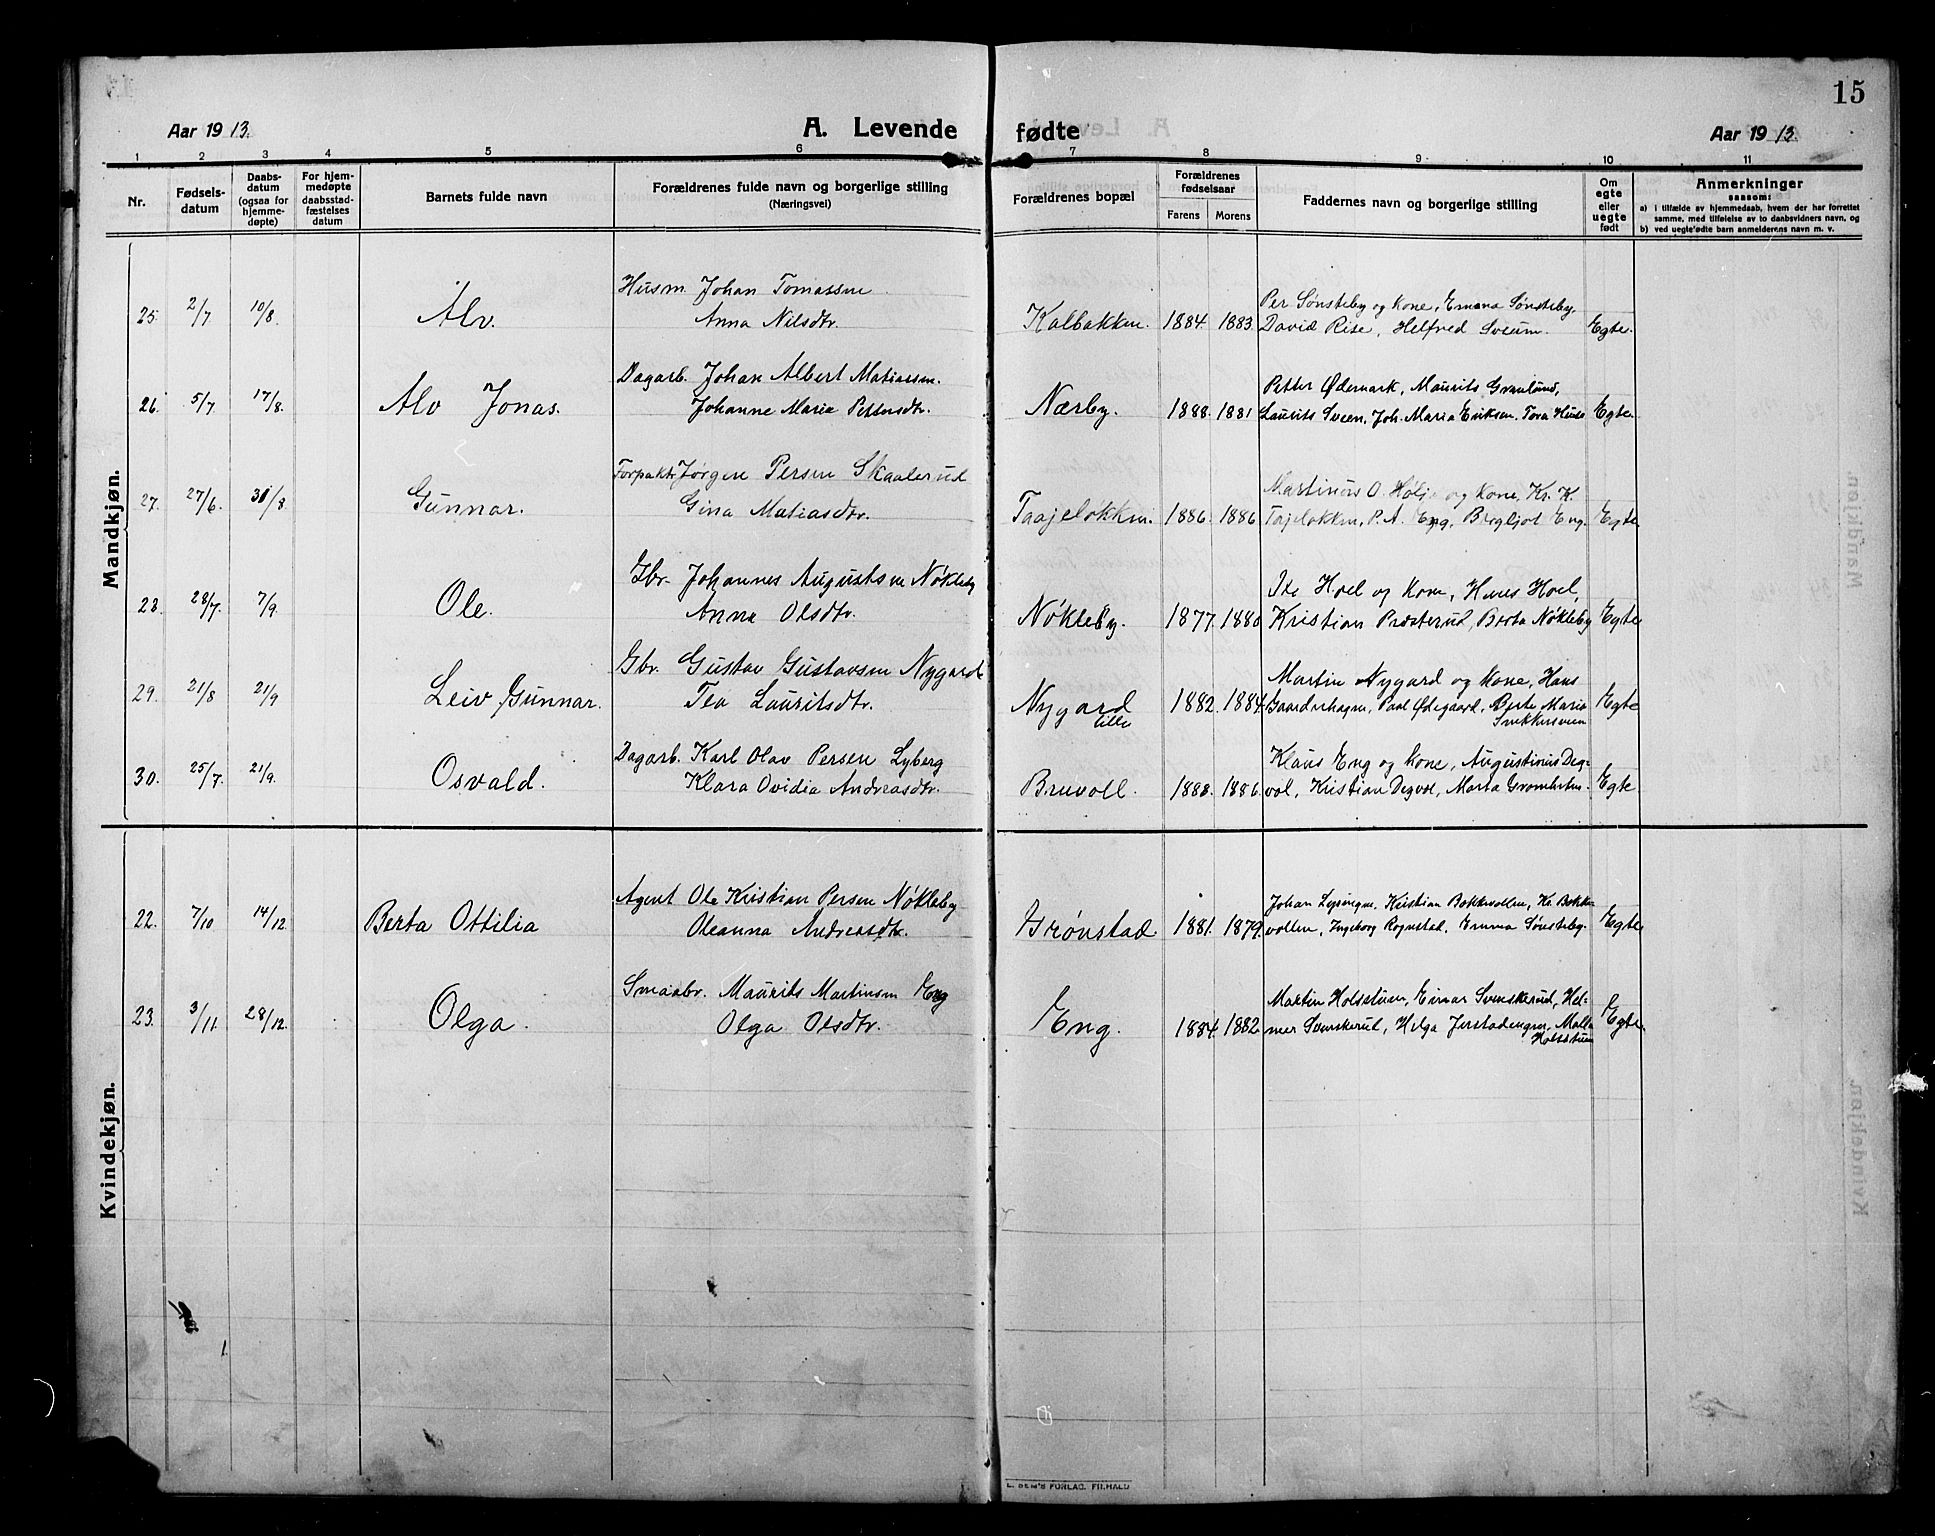 15
Aar 1913.
A. Levende fødte
Aar 1913.
1 2 3 4 5 6 7 8 9 10 11
Nr.
Fødselsdatum
Daabsdatum (ogsaa for hjemmedøpte)
For hjemmedøpte daabsstadfæstelses datum
Barnets fulde navn
Forældrenes fulde navn og borgerlige stilling
(Næringsvei)
Forældrenes bopæl
Forældrenes fødselsaar
Farens Morens
Faddernes navn og borgerlige stilling
Om egte eller uegte født
Anmerkninger
saasom:
a) i tilfælde av hjemmedaab, hvem der har forrettet
samme, med tilføielse av to daabsvidners navn, og
b) ved uegtefødte barn anmelderens navn m. v.
Mandkjøn.
25. 2/7 10/8 Alv. Husm. Johan Tomassen
Anna Nilsdtr. Kalbakken. 1884. 1883. Per Sønsteby og kone, Emma Sønsteby.
David Rise, Helfred Sveum. Egte.
26. 5/7 17/8. Alv Jonas. Dagarb. Johan Albert Matiassen.
Johanne Marie Pettersdtr. Nærby. 1888. 1881 Petter Ødemark, Maurits Granlund,
Laurits Sveen, Joh. Maria Eriksen. Tora Huse Egte.
27. 27/6. 31/8 Gunnar. Forpaktr. Jørgen Persen Skaalerud
Gina Matiasdtr. Taajeløkken. 1886. 1886 Martinius O. og kone, Kr. K.
Tajeløkken, P. A. Eng, Bergljot Eng. Egte
28. 28/7. 7/9. Ole. Gbr. Johannes Augustsen Nøkleby
Anna Olsdtr. Nøkleby. 1877. 1880 Hoel og kone, Hans Hoel,
Kristian Prosterud, Berta Nøkleby Egte
29. 21/8 21/9 Leiv Gunnar. Gbr. Gustav Gustavsen Nygard
Tea Lauritsdtr. Nygard lille 1882. 1884. Martin Nygard og kone, Hans
Gaarderhagen, Paal Ødegaard, Berte Maria
Snekkersveen Egte
30. 25/7. 21/9. Osvald. Dagarb. Karl Olav Persen Lyberg
Klara Ovidia Andreasdtr. Bruvoll. 1888. 1886. Klaus Eng og kone, Augustinus Deg-
vol, Kristian Degvol, Marta Egte
Kvindekjøn.
22. 7/10 14/12. Berta Ottilia Agent Ole Kristian Persen Nøkleby
Oleanna Andreasdtr. Grønstad 1881. 1879. Johan Kristian Bakkevollen,
vollen, Ingeborg Rognstad, Emma Sønsteby. Egte
23. 3/11. 28/12. Olga. Smaabr. Maurits Martinsen Eng
Olga Olsdtr. Eng. 1884. 1882 Martin Holsstuen, Einar Svenskerud, Hel-
mer Svenskerud, Helga Jerstadengen,
Holsstuen Egte.
E. SEM'S FORLAG. FR.HALD